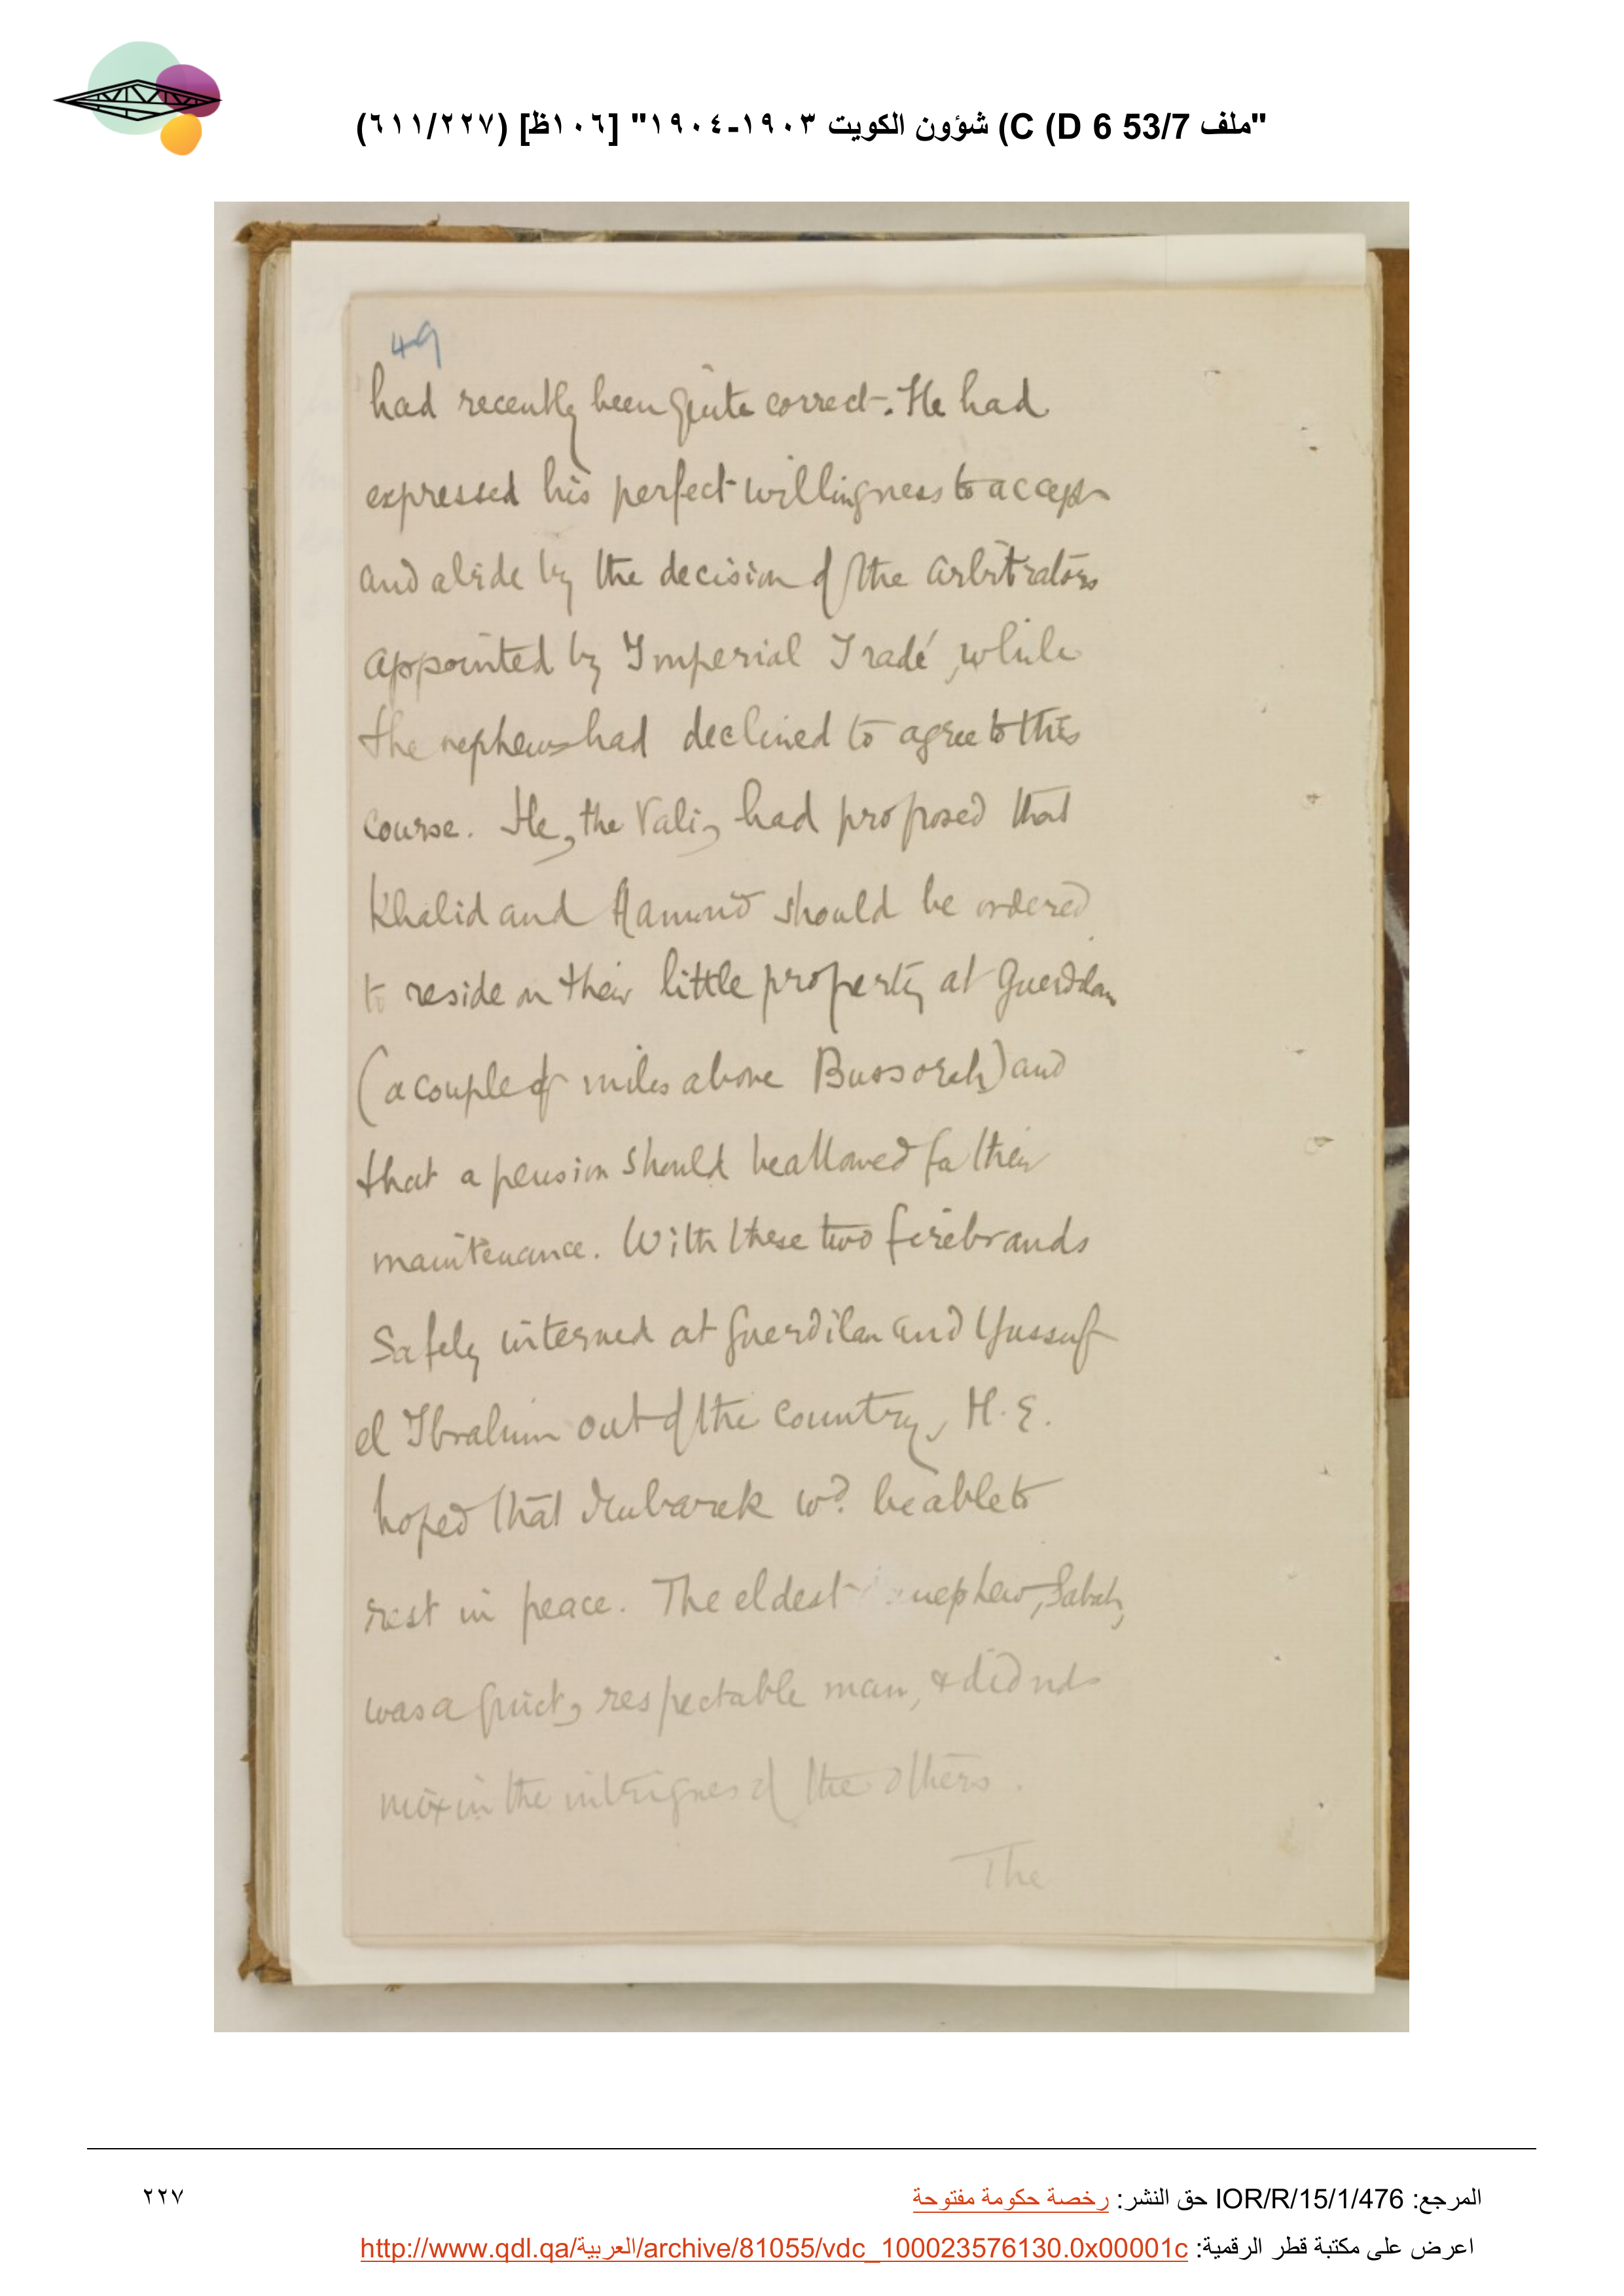 "ملف 53/7 C (D 6) شؤون الكويت ١٩٠٣-١٩٠٤" [١٠٦ظ] (٦١١/٢٢٧)
49
had recently been quite correct. He had
expressed his perfect willingness to accept
and abide by the decision of the arbitrators
appointed by Imperial Iradé, while
the nephews had declined to agree to this
course. He, the Vali, had proposed that
Khalid and Hamud should be ordered
to reside on their little property at Guerdilan
(a couple of miles above Bussorah) and
that a pension should be allowed for their
maintenance. With these two firebrands
safely interned at Guerdilan and Yussuf
el Ibrahim out of the country, H.E.
hoped that Mubarak wd. be able to
rest in peace. The eldest nephew, Sabah,
was a quiet, respectable man, & did not
mix in the intrigues of the others.
The
المرجع: IOR/R/15/1/476 حق النشر: رخصة حكومة مفتوحة
٢٢٧
اعرض على مكتبة قطر الرقمية: http://www.qdl.qa/العربية/archive/81055/vdc_100023576130.0x00001c